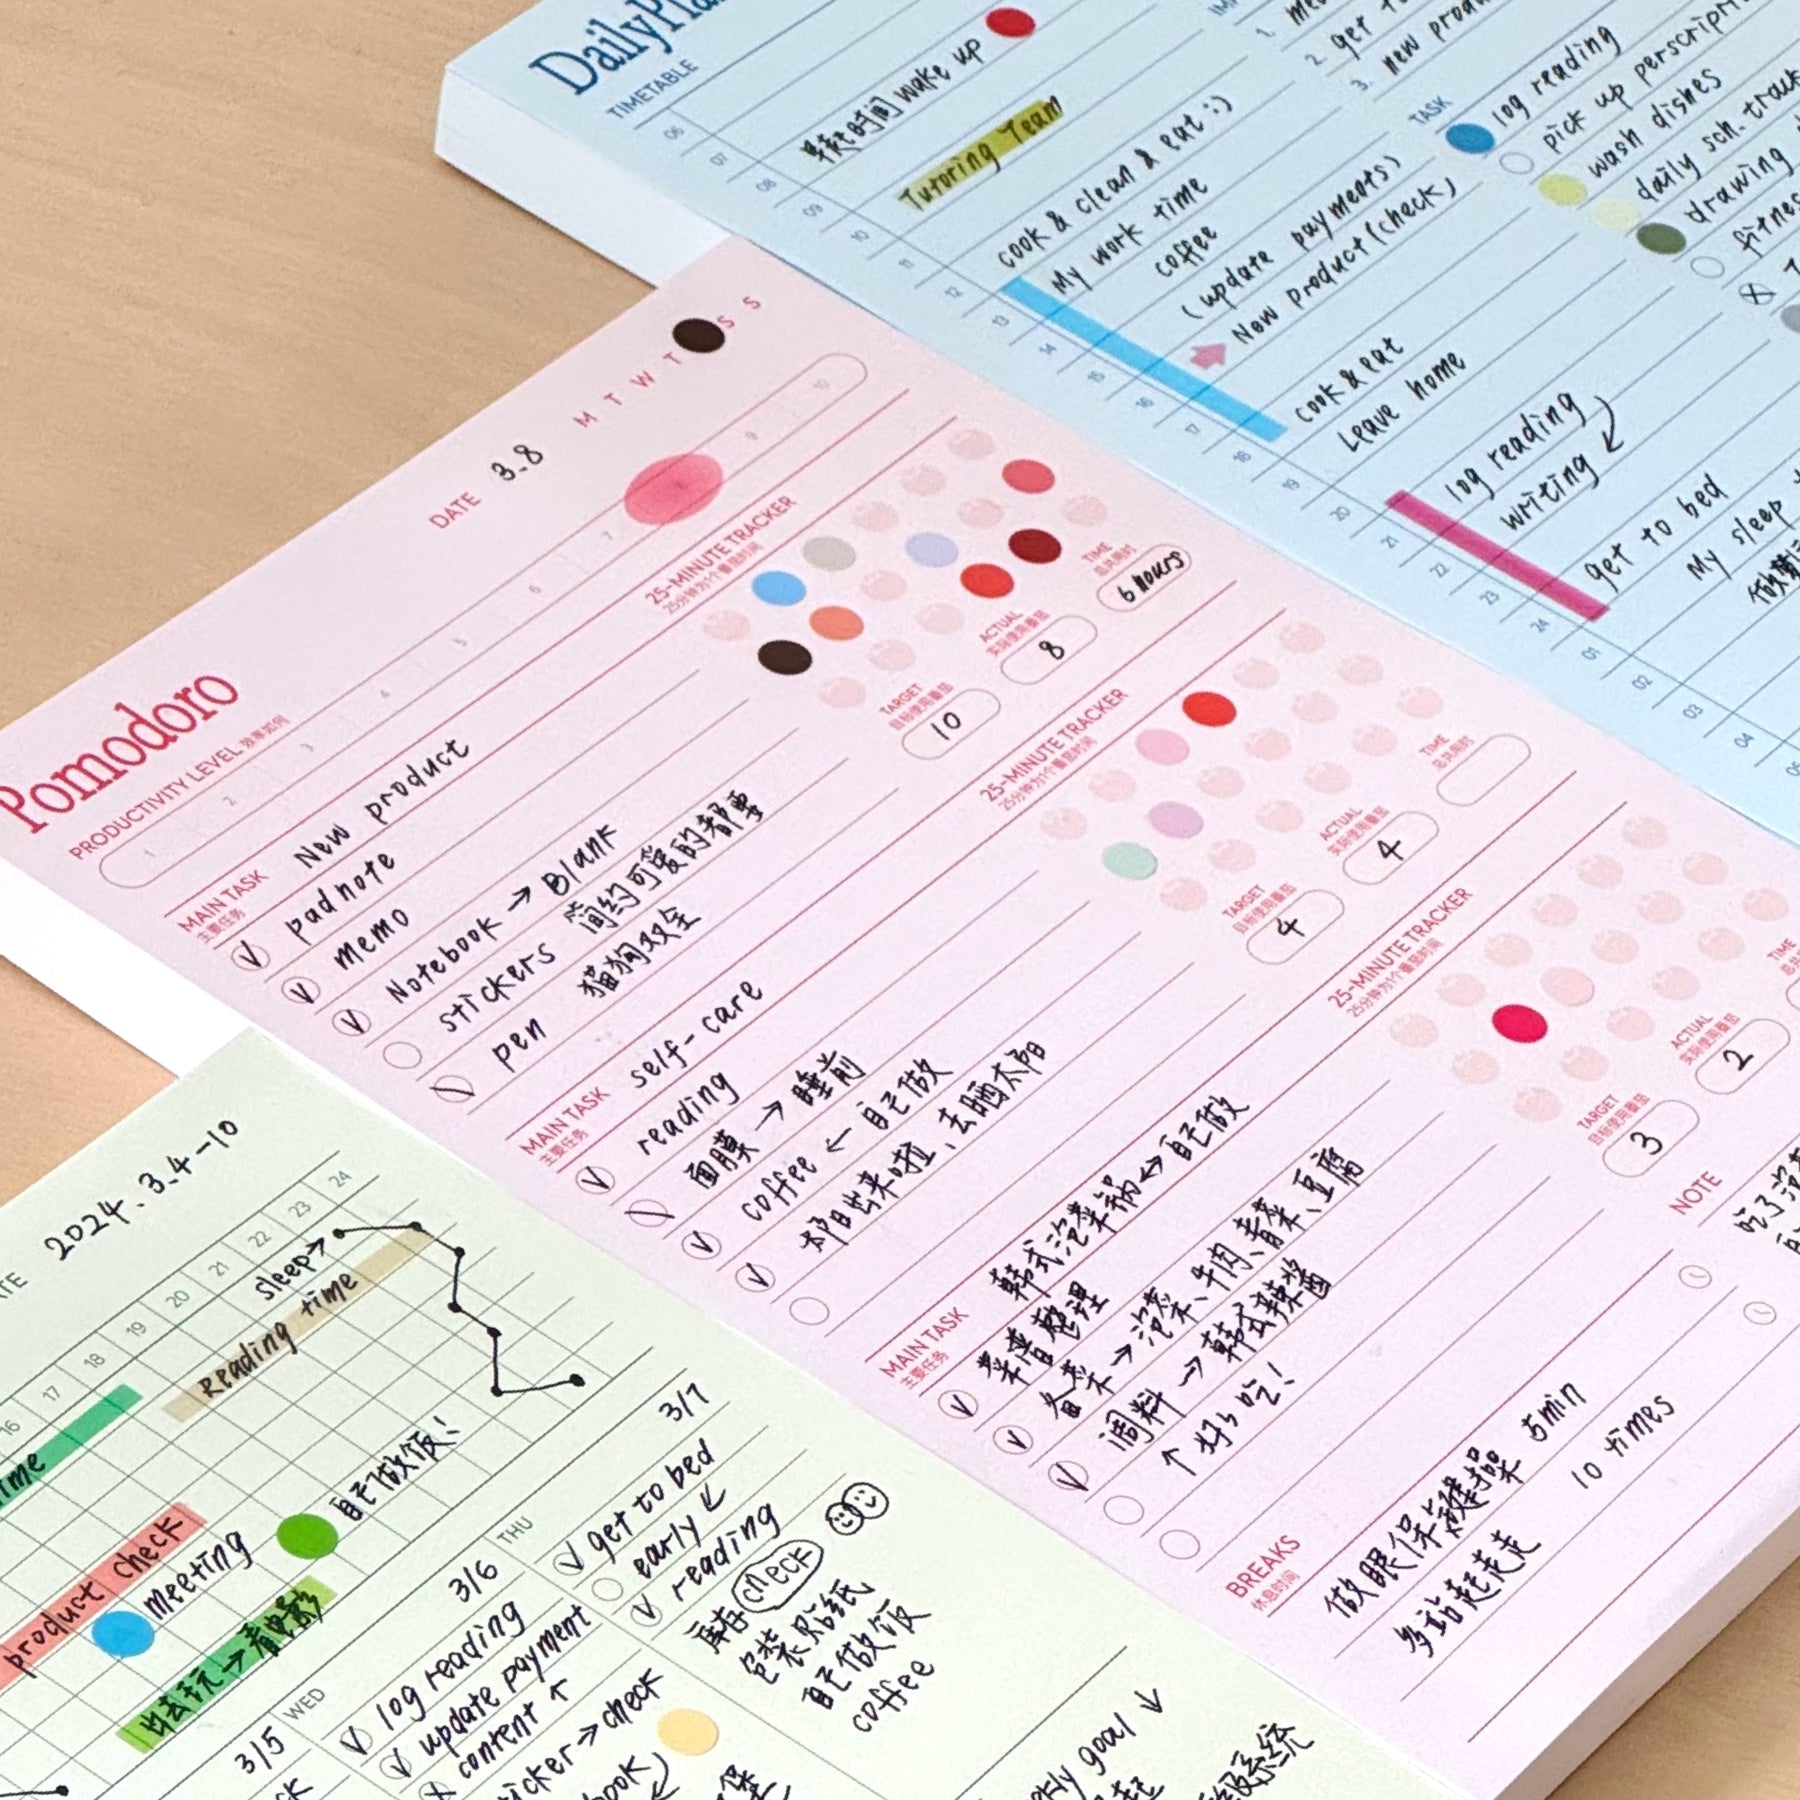 TIMETABLE
06
07
wake up
08
09
Tutoring Team
10
11
cook & clean & eat :)
12
My work time
13
coffee
14
(update payments)
15
New product (check)
16
17
cook & eat
18
Leave home
19
20
log reading
21
writing
22
23
get to bed
24
My sleep
01
02
03
04
05
1.
2. get
3. new
TASK
log reading
pick up
wash dishes
daily sch.
drawing
Pomodoro
DATE 3.8 M T W T S S
PRODUCTIVITY LEVEL 效率如何
1 2 3 4 5 6 7 9 10
MAIN TASK New product
主要任务
25-MINUTE TRACKER
25分钟为1个番茄时间
V padnote
V memo
V Notebook → Blank
stickers 简约可爱的都要
pen 猫狗双全
TARGET
目标使用番茄
10
ACTUAL
实际使用番茄
8
TIME
总共用时
6 hours
MAIN TASK self-care
主要任务
25-MINUTE TRACKER
25分钟为1个番茄时间
V reading
面膜 → 睡前
V coffee ← 自己做
V 太阳出来啦、去晒太阳
TARGET
目标使用番茄
4
ACTUAL
实际使用番茄
4
TIME
总共用时
MAIN TASK 韩式泡菜锅↔自己做
主要任务
25-MINUTE TRACKER
25分钟为1个番茄时间
V 菜谱整理
V 备菜 → 泡菜、牛肉、青菜、豆腐
V 调料 → 韩式辣酱
↑ 好好吃!
TARGET
目标使用番茄
3
ACTUAL
实际使用番茄
2
TIME
BREAKS
休息时间
做眼保健操 5min
多站起走走 10 times
NOTE
2024.3.4-10
16 17 18 19 20 21 22 23 24
sleep→
reading time
product check
meeting
自己做饭!
出去玩→看电影
3/5
WED
3/6
V log reading
V update payment
content ↑
→check
THU
3/7
V get to bed
early ↙
V reading
库存check
包装贴纸
自己做饭
coffee
goal ↓